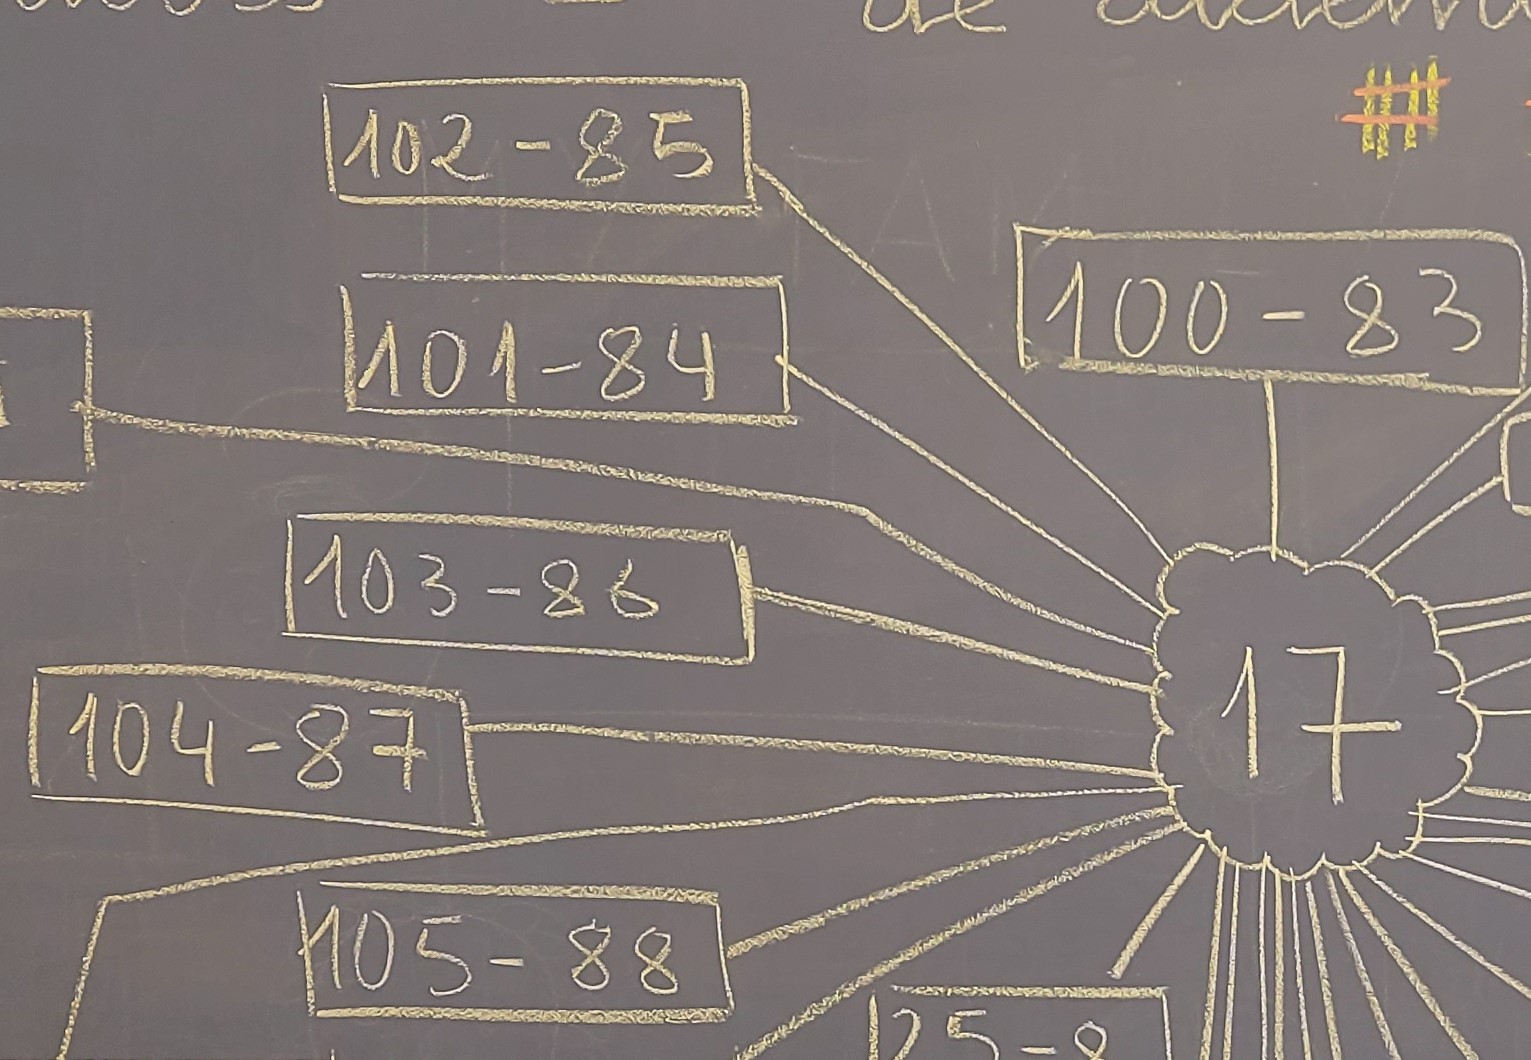 de
102-85
100-83
101-84
103-86
17
104-87
105-88
25-8